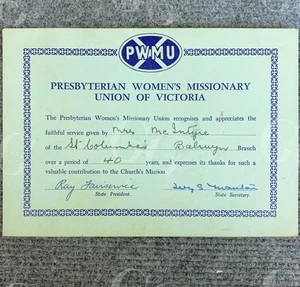 PWMU
PRESBYTERIAN WOMEN'S MISSIONARY
UNION OF VICTORIA
The Presbyterian Women's Missionary Union recognises and appreciates the
faithful service given by Mrs McIntyre
of the St Columba's Balwyn Branch
over a period of 40 years, and expresses its thanks for such a
valuable contribution to the Church's Mission.
Ray
State President. State Secretary.